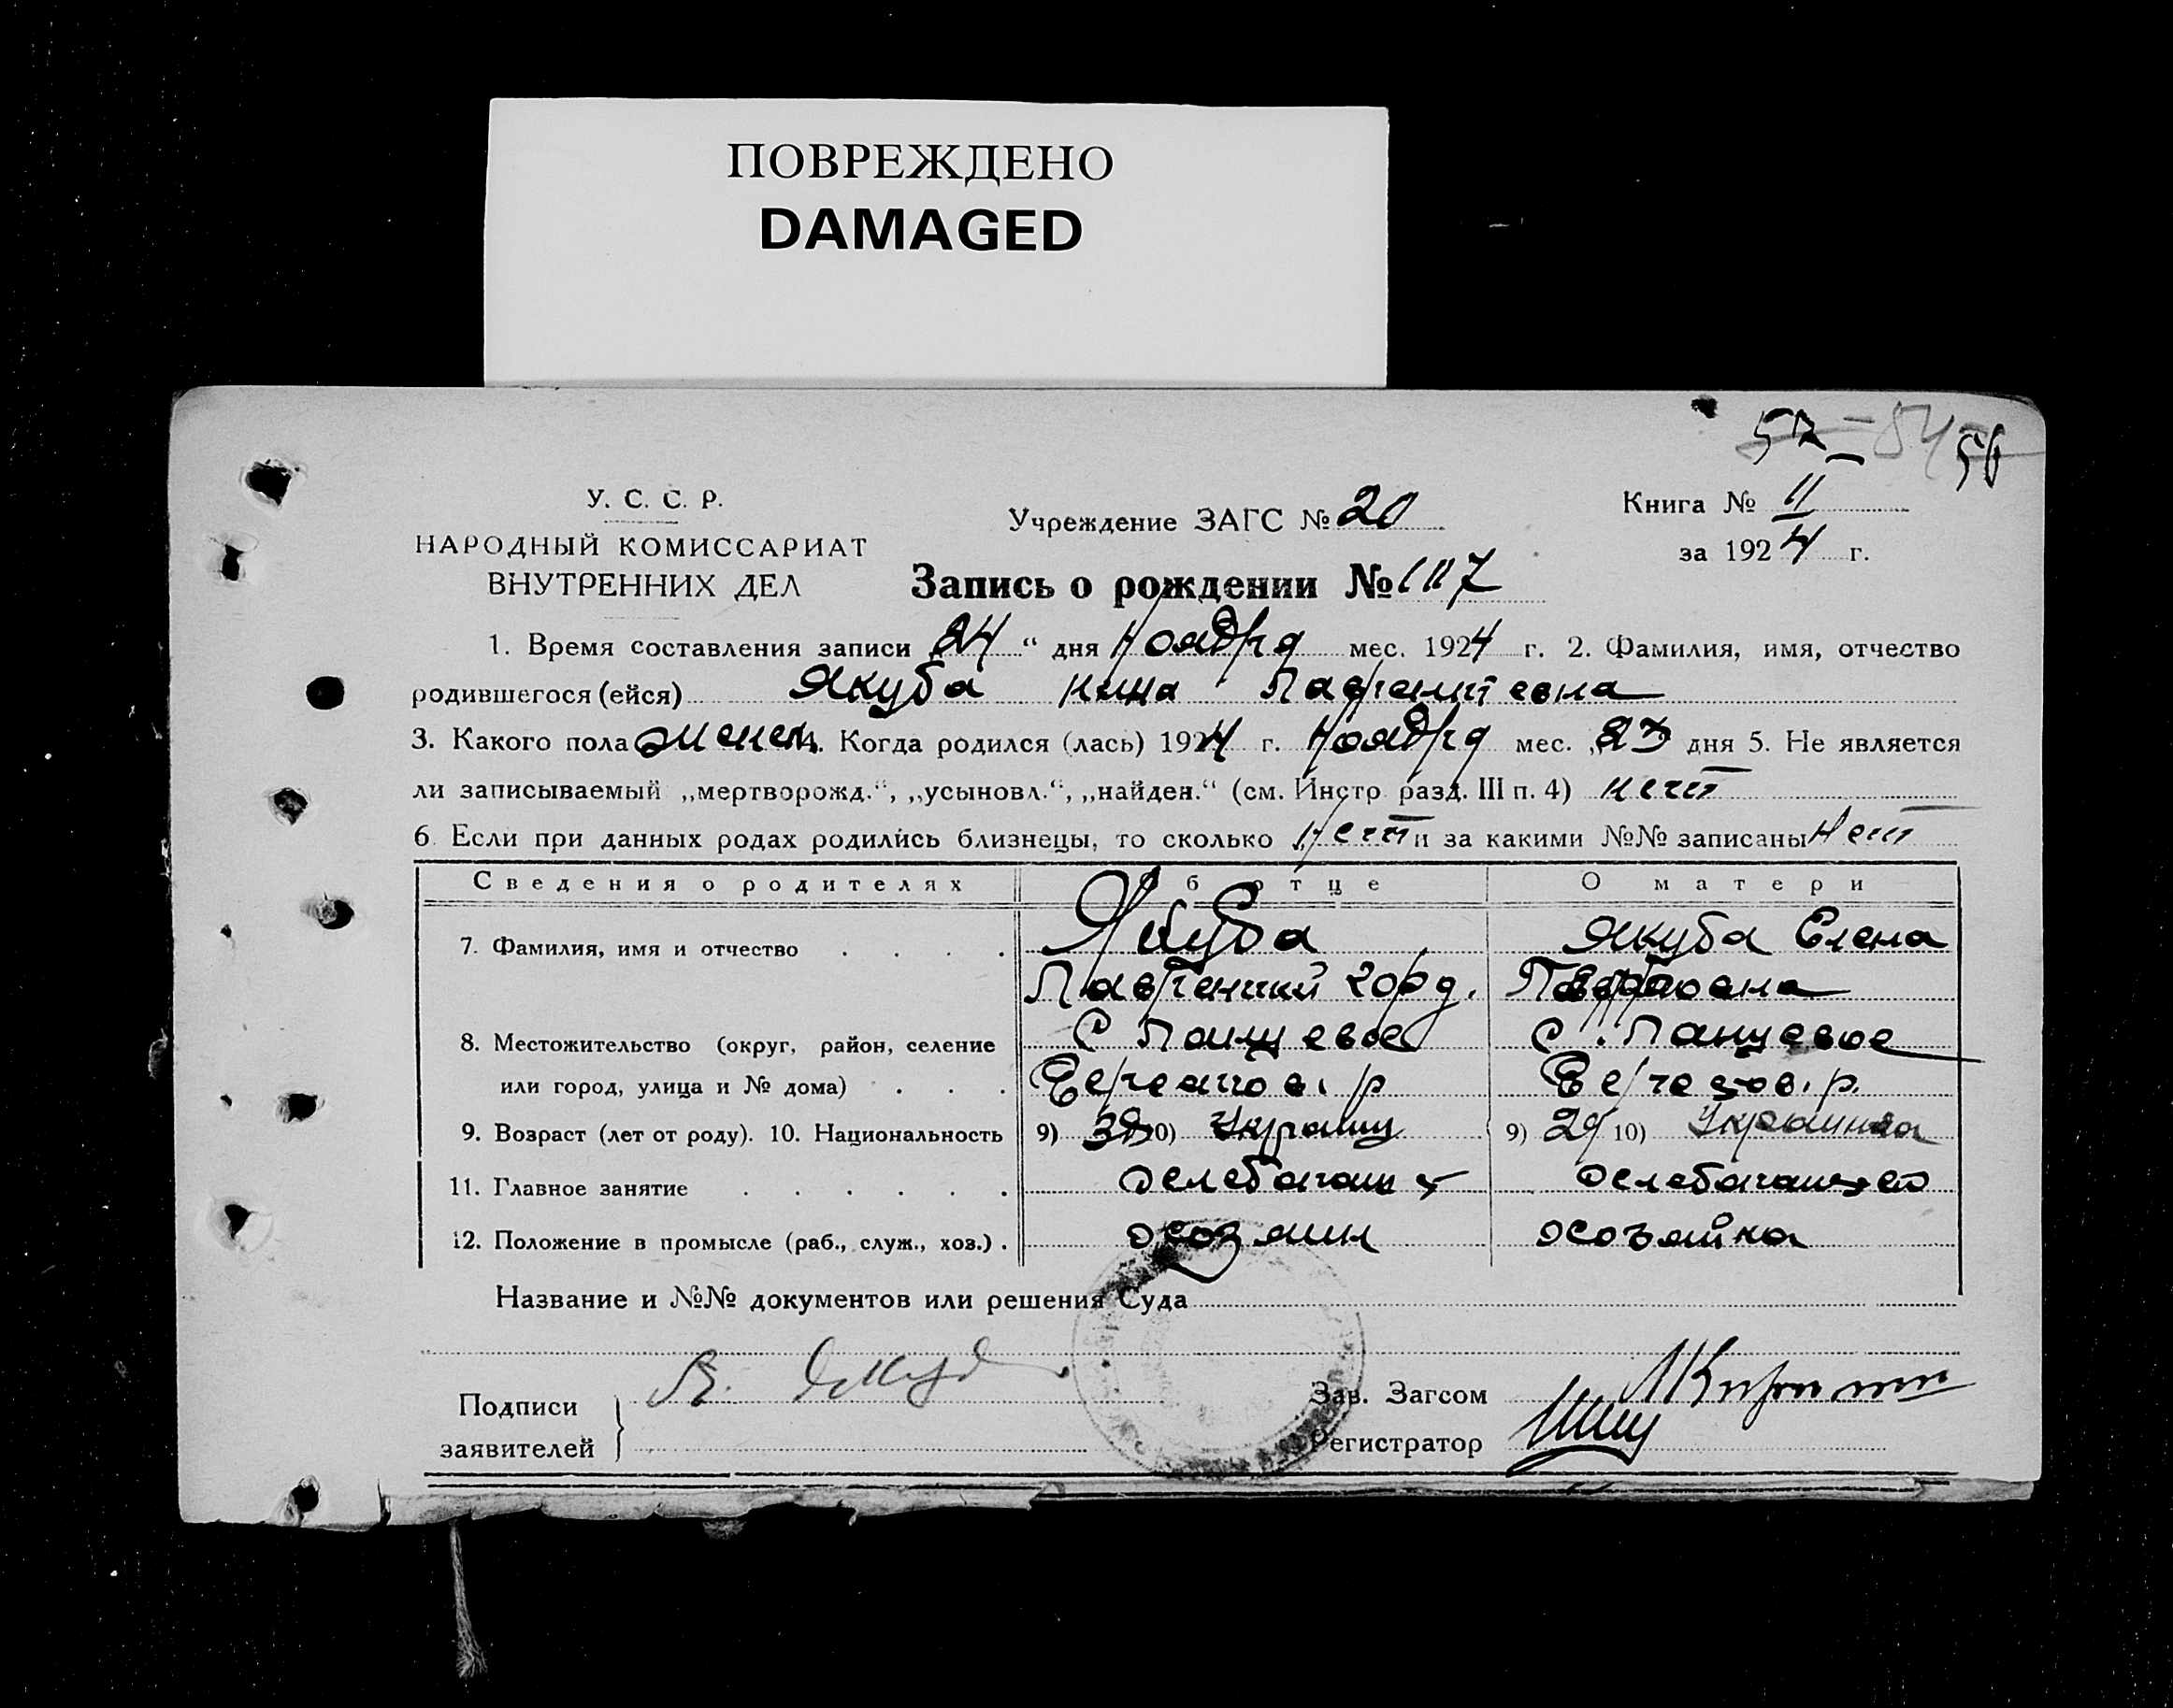 ПОВРЕЖДЕНО
DAMAGED
52 54 56
У. С. С. Р.
НАРОДНЫЙ КОМИССАРИАТ
ВНУТРЕННИХ ДЕЛ
Учреждение ЗАГС № 20
Книга № II
за 1924 г.
Запись о рождении № 117
1. Время составления записи „24“ дня Ноября мес. 1924 г. 2. Фамилия, имя, отчество
родившегося (ейся) Якуба Нина Лаврентевна
3. Какого пола женск. Когда родился (лась) 1924 г. Ноября мес. „23 дня 5. Не является
ли записываемый „мертворожд.“, „усыновл.“, „найден.“ (см. Инстр. разд. III п. 4) нет
6. Если при данных родах родились близнецы, то сколько Нет и за какими №№ записаны Нет
Сведения о родителях Об отце О матери
7. Фамилия, имя и отчество Якуба Якуба Елена
Лаврентий
8. Местожительство (округ, район, селение С С.
или город, улица и № дома) р р.
9. Возраст (лет от роду). 10. Национальность 9) 10) Украинц 9) 29 10) Украинка
11. Главное занятие
12. Положение в промысле (раб., служ., хоз.) хозяин хозяйка
Название и №№ документов или решения Суда
Подписи
заявителей
Зав. Загсом
Регистратор